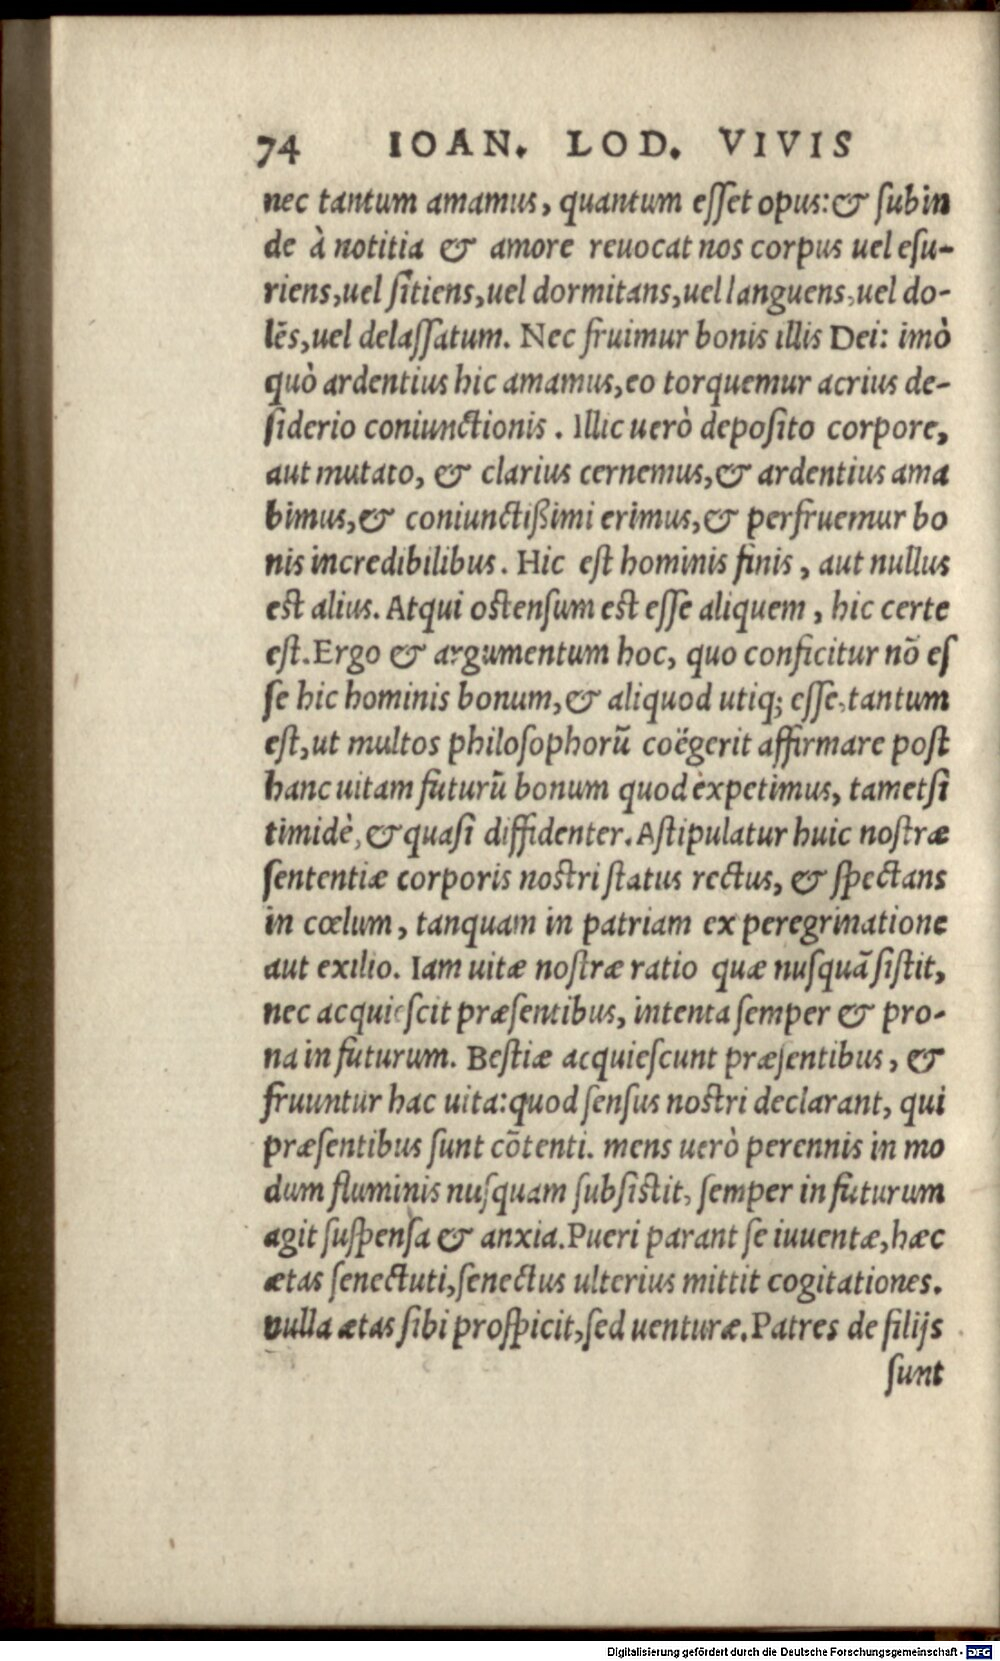 74 IOAN. LOD. VIVIS
nec tantum amamus, quantum eſſet opus: & ſubin
de à notitia & amore reuocat nos corpus uel eſu-
riens, uel ſitiens, uel dormitans, uel languens, uel do-
lẽs, uel delaſſatum. Nec fruimur bonis illis Dei: imò
quò ardentius hic amamus, eo torquemur acrius de-
ſiderio coniunctionis. Illic uerò depoſito corpore,
aut mutato, & clarius cernemus, & ardentius ama
bimus, & coniunctißimi erimus, & perfruemur bo
nis incredibilibus. Hic eſt hominis finis, aut nullus
eſt alius. Atqui oſtenſum eſt eſſe aliquem, hic certe
eſt. Ergo & argumentum hoc, quo conficitur nõ eſ
ſe hic hominis bonum, & aliquod utiq; eſſe, tantum
eſt, ut multos philoſophorũ coëgerit affirmare poſt
hanc uitam futurũ bonum quod expetimus, tametſi
timidè, & quaſi diffidenter. Aſtipulatur huic noſtræ
ſententiæ corporis noſtri ſtatus rectus, & ſpectans
in cœlum, tanquam in patriam ex peregrinatione
aut exilio. Iam uitæ noſtræ ratio quæ nuſquã ſiſtit,
nec acquieſcit præſentibus, intenta ſemper & pro-
na in futurum. Beſtiæ acquieſcunt præſentibus, &
fruuntur hac uita: quod ſenſus noſtri declarant, qui
præſentibus ſunt cõtenti. mens uerò perennis in mo
dum fluminis nuſquam ſubſiſtit, ſemper in futurum
agit ſuſpenſa & anxia. Pueri parant ſe iuuentæ, hæc
ætas ſenectuti, ſenectus ulterius mittit cogitationes.
nulla ætas ſibi proſpicit, ſed uenturæ. Patres de filijs
ſunt
Digitalisierung gefördert durch die Deutsche Forschungsgemeinschaft - DFG